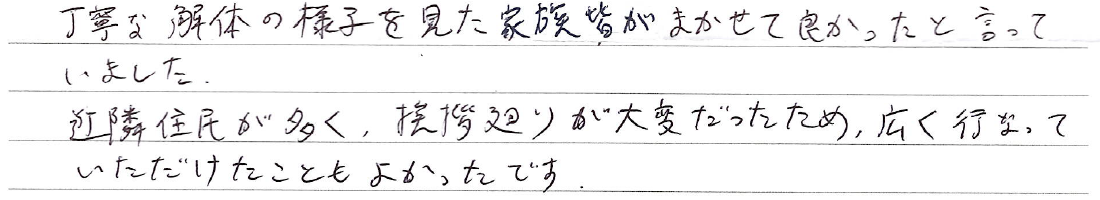 丁寧な解体の様子を見た家族皆がまかせて良かったと言って
いました.
近隣住民が多く,挨拶廻りが大変だったため,広く行なって
いただけたこともよかったです.